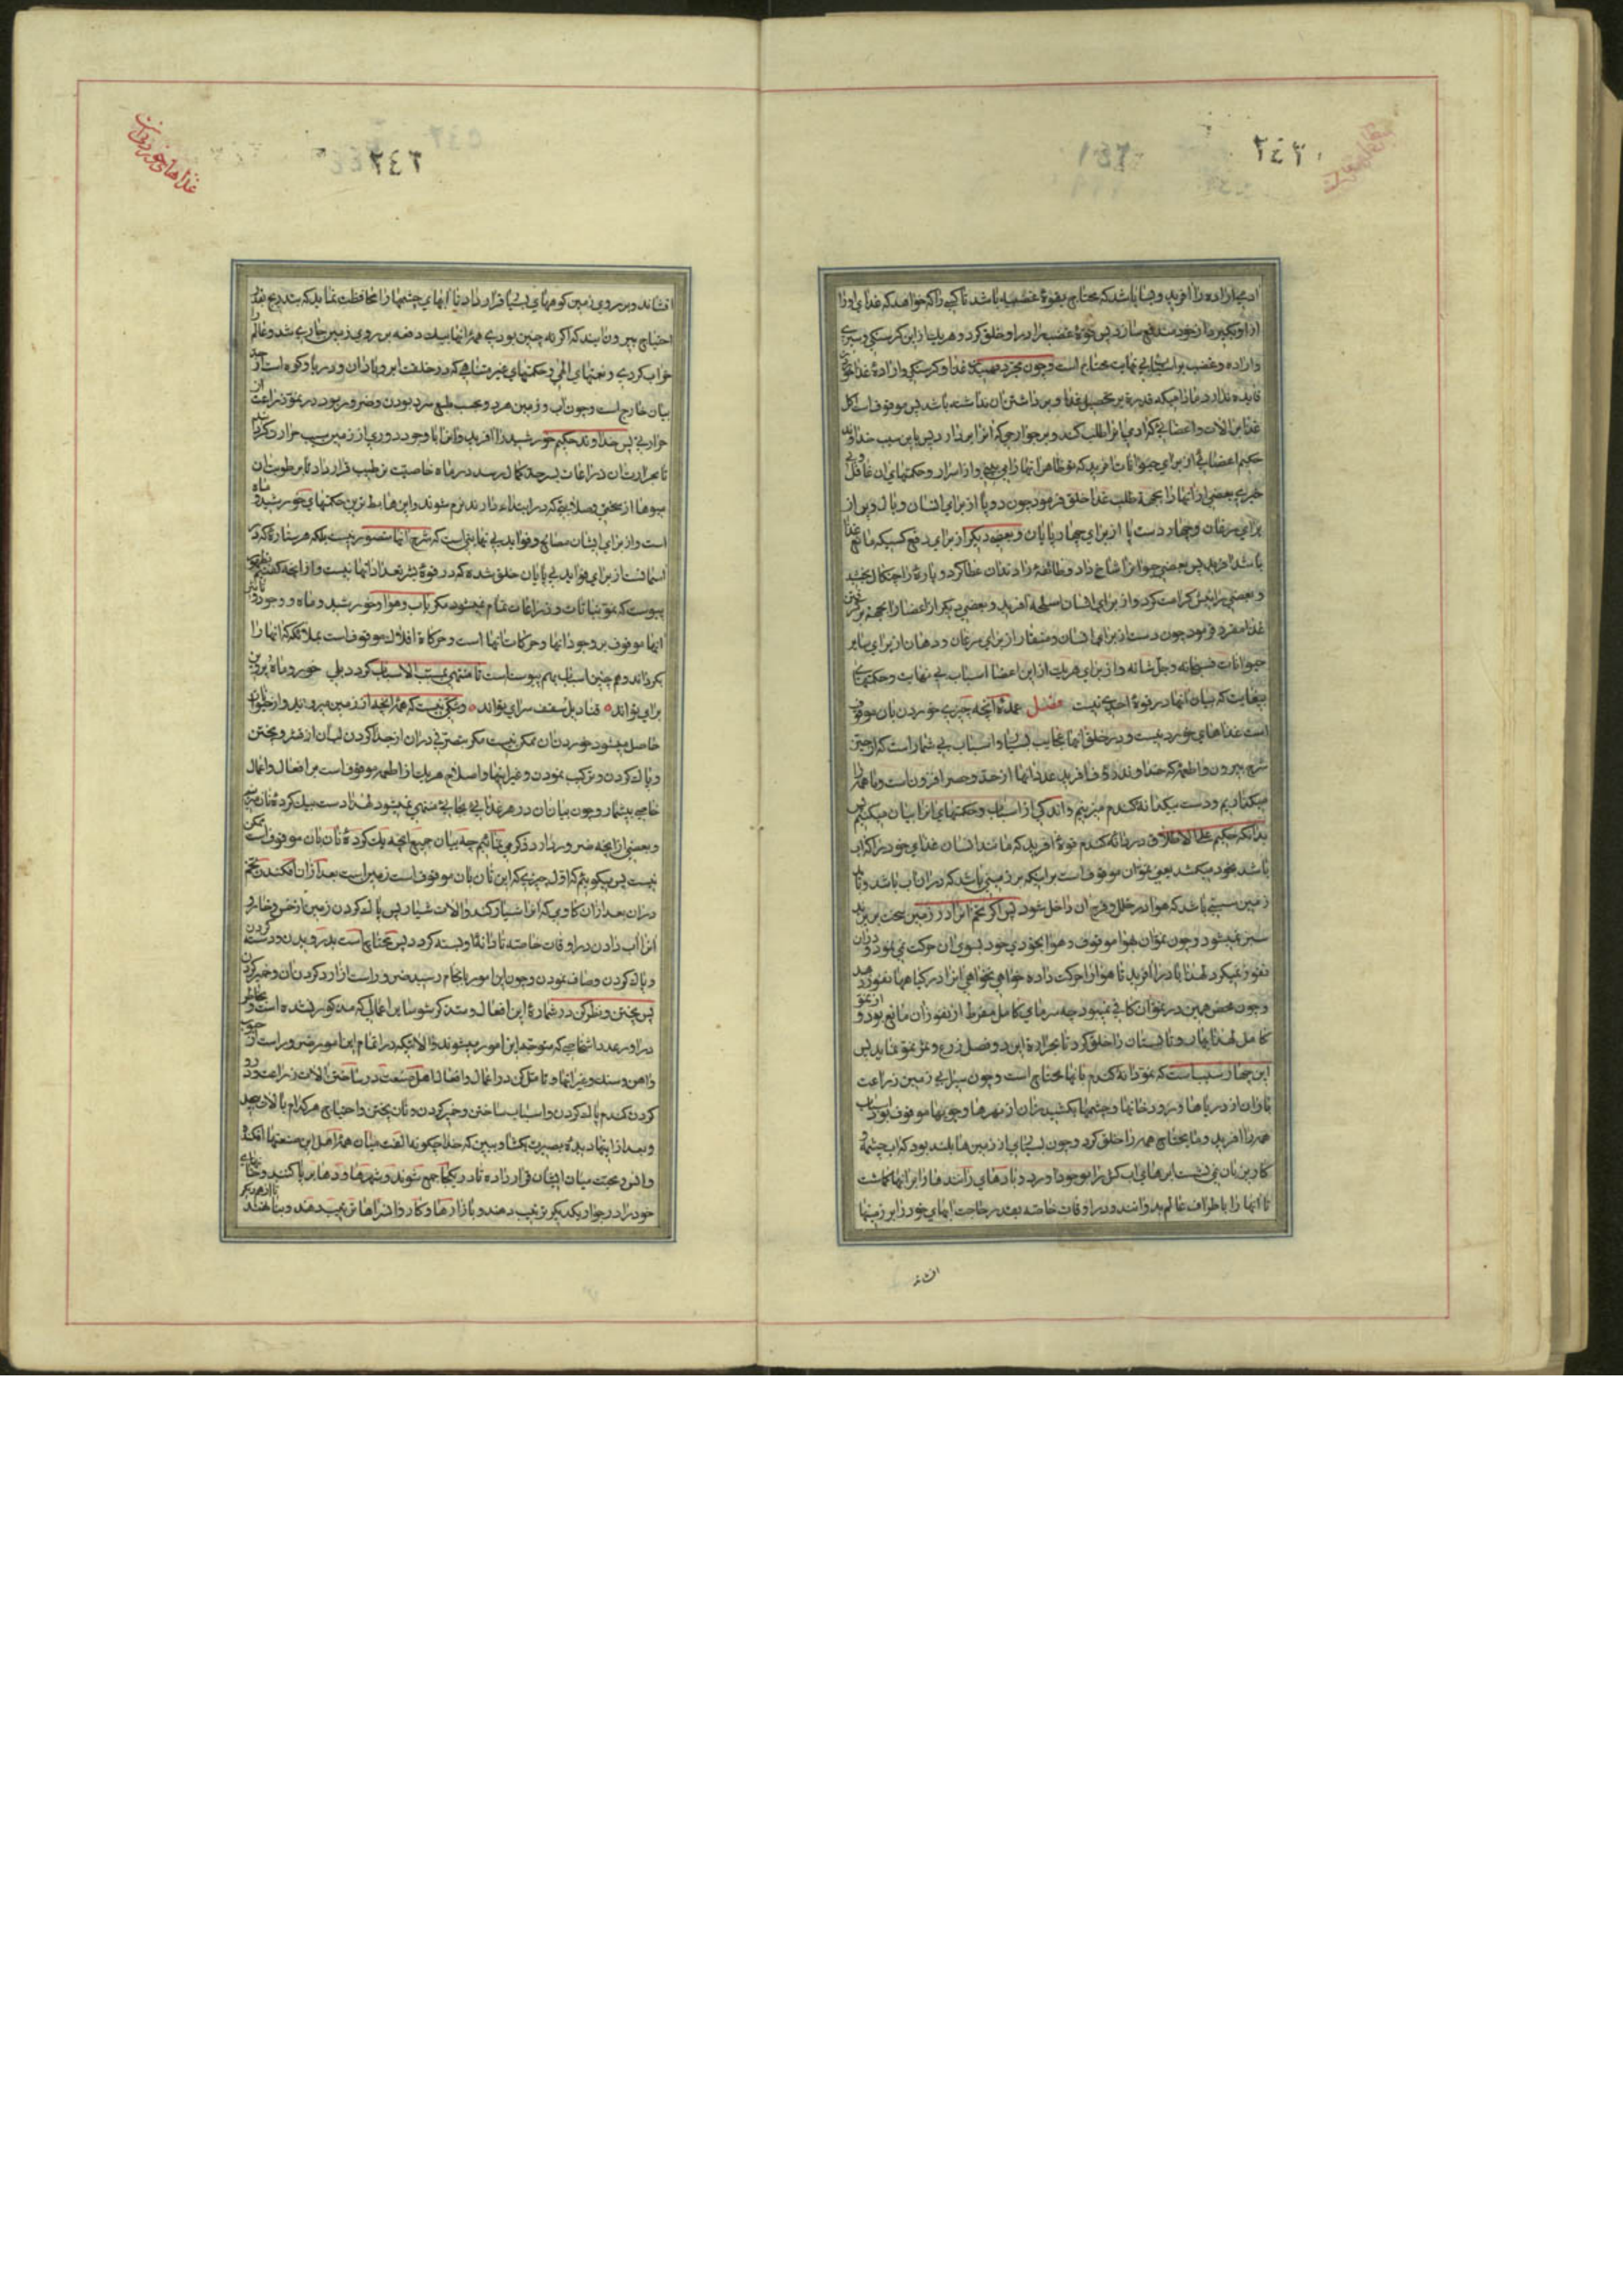 ٢٤٣
ادمی اراده را افرید و بسا باشد که محتاج بقوهٔ غضبیه باشد تا کسی را که خواهد که غذای او را
از او بگیرد از خود دفع سازد پس قوهٔ غضب را در او خلق کرد و هر یک از این گرسنگی و سیری
و اراده و غضب را اسبابی بی نهایت محتاج است و چون مجرد تهیهٔ غذا و گرسنگی و ارادهٔ غذا خوردن
فایده ندارد مادامیکه قدرة بر تحصیل غذا و برداشتن ان نداشته باشد پس موقوف است اکل
غذا بر الات و اعضائی که ادمی انرا طلب کند و بر جوارحی که انرا بردارد پس باین سبب خداوند
حکیم اعضائی از برای حیوانات افرید که تو ظاهر انها را می بینی و از اسرار و حکمتهای ان غافل و بی
خبری بعضی از انها را بجهة طلب غذا خلق فرمود چون دو پا از برای انسان و بال و پر از
برای مرغان و چهار دست پا از برای چهار پایان و بعضی دیگر از برای دفع کسیکه مانع غذا
باشد افرید پس بعضی حیوانرا شاخ داد و طائفهٔ را دندان عطا کرد و پارهٔ را چنگال بخشید
و بعضی را نیش کرامت کرد و از برای انسان اسلحه افرید و بعضی دیگر از اعضا را بجهة برگرفتن
غذا مقرر فرمود چون دست از برای انسان و منقار از برای مرغان و دهان از برای سایر
حیوانات فسبحانه و جل شانه و از برای هر یک از این اعضا اسباب بی نهایت و حکمتهای
بیغایت که بیان انها در قوهٔ احدی نیست فصل عمدهٔ انچه چیزی خوردن بان موقوف
است غذاهای خوردنیست و در خلق انها عجایب بسیار و اسباب بی شمار است که از حیّز
شرح بیرون و اطعمهٔ که خداوند ودود افرید عدد انها از حد و حصر افزون است و ما همه را
میگذاریم و دست بیکدانه گندم میزنیم و اندکی از اسباب و حکمتهای انرا بیان میکنیم پس
بدانکه حکیم علی الاطلاق در دانه گندم قوهٔ افرید که مانند انسان غذای خود را که اب
باشد بخود میکشد یعنی نمو ان موقوف است بر اینکه بر زمینی باشد که در ان اب باشد و باید
زمین سستی باشد که هوا در خلل و فرج ان داخل شود پس اگر تخم انرا در زمین سخت بریزند
سبز نمیشود و چون نمو ان بهوا موقوف و هوا بخودی خود بسوی ان حرکت نمی نمود و در ان
نفوذ نمیکرد لهذا باد را افرید تا هوا را حرکت داده خواهی نخواهی انرا در گیاهها نفوذ دهد
و چون محض همین در نمو ان کافی نمیبود چه سرمای کامل مفرط از نفوذ ان مانع بود و از نمو
کامل لهذا بهار و تابستان را خلق کرد تا بحرارة این دو فصل زرع و ثمر نمو نماید پس
این چهار سبب است که نمو دانه گندم بانها محتاج است و چون سیرابی زمین زراعت
باران از دریاها و رودخانها و چشمها بکشیدن ان از نهرها و جویها موقوف بود اسباب
همه را افرید و ما یحتاج همه را خلق کرد و چون بسیاری از زمین ها بلند بود که اب چشمه و
کاریز بان نمی نشست ابرهای اب کش را بوجود اورد و بادهای رانند ها را بر انها گماشت
تا انها را باطراف عالم بدوانند و در اوقات خاصه بقدر حاجت ابهای خود را بر زمینها
افشانند
٢٤٣
غذاهای خوردنی
افشاند و بر روی زمین کوههای بسیار قرار داد تا ابهای چشمها را محافظت نماید که بتدریج بقدر
احتیاج بیرون ایند که اگر نه چنین بودی همهٔ انها بیک دفعه بر روی زمین جاری شد و عالم را
خراب کردی و نعمتهای الهی و حکمتهای غیر متناهی که در خلقت ابر و باران و دریا و کوه است از حد
بیان خارج است و چون اب و زمین هر دو بحسب طبع سرد بودن و ضرور بود در نمو زراعت از
حرارتی پس خداوند حکیم خورشید را افرید و انرا با وجود دوری از زمین سبب حرارت گردانید
تا بحرارت ان زراعات بسر حد کمال رسد در ماه خاصیت ترطیب قرار داد تا برطوبت ان
میوها از سختی و صلابتی که در ابتداء دارند نرم شوند و این ها بسط ترین حکمتهای خورشید و ماه
است و از برای ایشان مصالح و فواید بی نهایتی است که شرح انها متصور نیست بلکه هر ستارهٔ که در
اسمانست از برای فواید بی پایان خلق شده که در قوهٔ بشر تعداد انها نیست و از انچه گفتیم بظهور
پیوست که نمو نباتات و زراعات تمام نمیشود مگر باب و هوا و خورشید و ماه و وجود و تاثیر
اینها موقوف بر وجود انها و حرکات انها است و حرکاة افلاک موقوف است بملائکه که انها را
بگردانند و همچنین اسباب بهم پیوست است تا منتهی بمسبب الاسباب گردد بلی خور و ماه و پروین
برای تواند * قنادیل سقف سرای تواند * و شکی نیست که همهٔ انچه از زمین میروید و از حیوان
حاصل میشود خوردن ان ممکن نیست مگر بتصرفی در ان از جدا کردن لب ان از قشر و پختن
و پاک کردن و ترکیب نمودن و غیر اینها و اصلاح هر یک از اطعمه موقوف است بر افعال و اعمال
خاصی بیشمار و چون بیان ان در هر غذائی بجائی منتهی نمیشود لهذا دست بیک گردهٔ نان میزنیم
و بعضی از انچه ضرور دارد ذکر می نمائیم چه بیان جمیع انچه یک گردهٔ نان بان موقوف است ممکن
نیست پس میگوئیم که اول چیزی که این نان بان موقوف است زمین است بعد از ان افکندن تخم
در ان بعد از ان گاوی که انرا شیار کند و الات شیار پس پاک کردن زمین از خس و خار و
انرا اب دادن در اوقات خاصه تا دانهٔ او بسته گردد پس محتاج است بدرویدن و دسته کردن
و پاک کردن و صاف نمودن و چون این امور بانجام رسید ضرور است از ارد کردن ان و خمیر کردن
پس پختن و نظر کن در شمارهٔ این افعال و متذکر شو سایر اعمالی که مذکور نشده است و بخاطر
در اور عدد اشخاصی که متوجه این امور میشوند و الاتیکه در اتمام اینها مورد ضرور است از چوب
و اهن و سنگ و غیر انها و تامل کن در اعمال و افعال اهل صنعت در ساختن الات زراعت و درو
کردن گندم پاک کردن و اسباب ساختن و خمیر کردن و نان پختن و احتیاج هر کدام بالات بیحد
و بعد از اینها دیدهٔ بصیرت بگشا و ببین که خدا چگونه الفت میان همهٔ اهل این صنعتها افکنده
و انس و محبت میان ایشان قرار داده تا در یکجا جمع شوند و شهرها و دهها بر پا کنند و خانهای
خود را در جوار یکدیگر ترتیب دهند و بازارها و کاروانسراها ترتیب دهند و بنا نهند